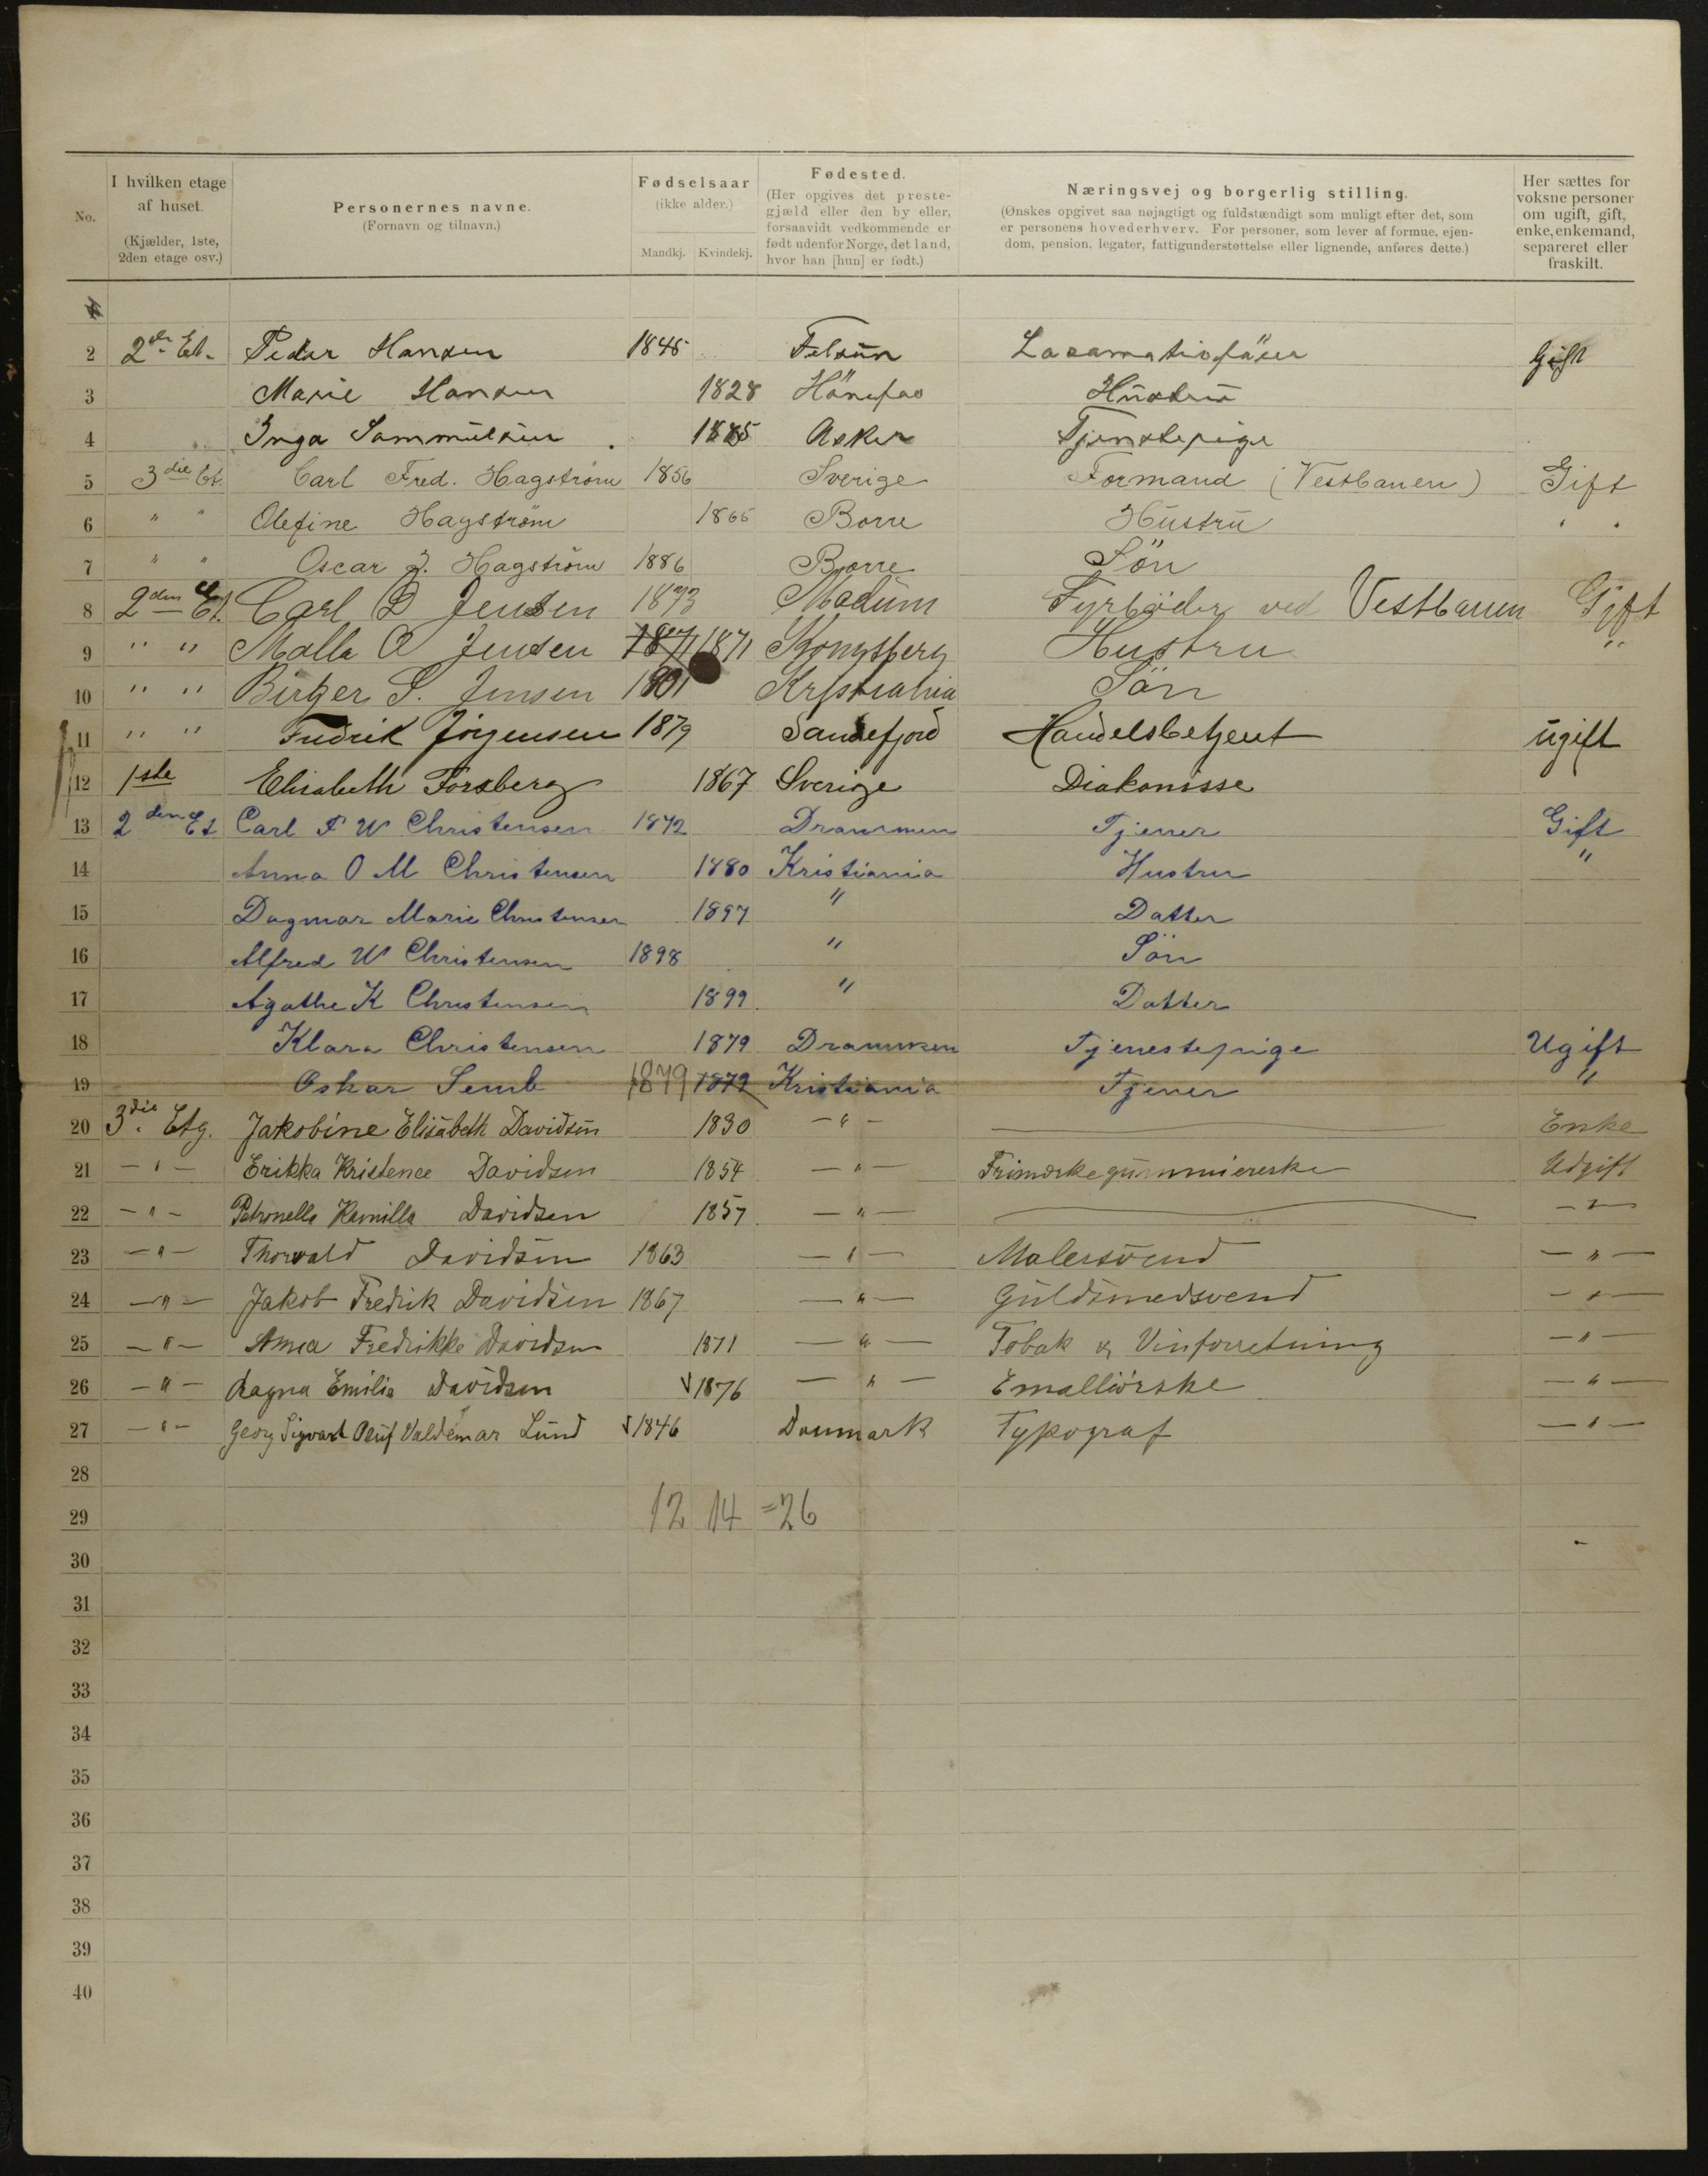 No. I hvilken etage af huset. (Kjælder, 1ste, 2den etage osv.) Personernes navne. (Fornavn og tilnavn.) Fødselsaar (ikke alder.) Mandkj. Kvindekj. Fødested. (Her opgives det prestegjæld eller den by eller, forsaavidt vedkommende er født udenfor Norge, det land, hvor han [hun] er født.) Næringsvej og borgerlig stilling. (Ønskes opgivet saa nøjagtigt og fuldstændigt som muligt efter det, som er personens hovederhverv. For personer, som lever af formue, ejendom, pension, legater, fattigunderstøttelse eller lignende, anføres dette.) Her sættes for voksne personer om ugift, gift, enke, enkemand, separeret eller fraskilt.
2 2den Et. Peder Hansen 1845 Gift
3 Marie Hansen 1828 Hönefos Hüstrü
4 Inga Sammülsen 1885 Asker Tjenstepige
5 3die Et. Carl Fred. Hagström 1856 Sverige Formand (Vestbanen) Gift
6 " " Olefine Hagström 1865 Borre Hüstrü " "
7 " " Oscar J. Hagström 1886 Borre Sön
8 2den Et. Carl D Jensen 1873 Modüm Fyrböder ved Vestbanen Gift
9 " " Malla O Jensen 1871 1871 Kongsberg Hustru "
10 " " Birger S. Jensen 1901 Krfstiahia Sön
11 " " Fredrik Jörgensen 1879 Sandefjord Handelsbetjent ügift
12 1ste Elisabeth Forsberg 1867 Sverige Diakonisse
13 2den Et Carl F W Christensen 1872 Drammen Tjener Gift
14 Anna O M Christensen 1880 Kristiania Hustru "
15 Dagmar Marie Christensen 1897 " Datter
16 Alfred W Christensen 1898 " Sön
17 Agathe K Christensen 1899 " Datter
18 Klara Christensen 1879 Drammen Tjenestepige Ugift
19 Oskar Semb 1879 1879 Kristiania Tjener "
20 3die Etg. Jakobine Elisabeth Davidsen 1830 — " — — Enke
21 — " — Erikka Kristence Davidsen 1854 — " — Frimærkegummiereske Udgift
22 — " — Petronella Kamilla Davidsen 1857 — " — — — " —
23 — " — Thorvald Davidsen 1863 — " — Malersvend — " —
24 — " — Jakob Fredrik Davidsen 1867 — " — Güldsmedsvend — " —
25 — " — Anna Fredrikke Davidsen 1871 — " — Tobak & Vinforretning — " —
26 — " — Ragna Emilie Davidsen 1876 — " — Emalliörske — " —
27 — " — Georg Sigvart Oluf Valdemar Lünd 1846 Danmark Typograf — " —
28
29 12 14 =26
30
31
32
33
34
35
36
37
38
39
40